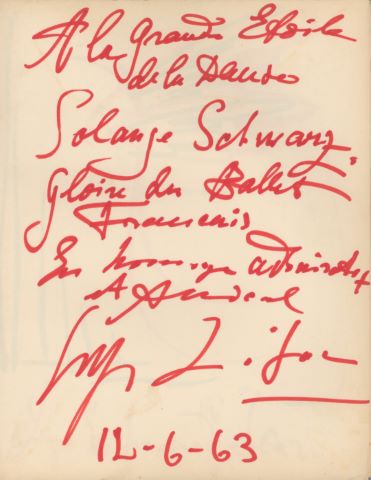 A la grande Etoile
de la Danse
Solange Schwarz,
gloire du Ballet
Francais
En hommage admiratif
et Amical
Serge Lifar
12-6-63